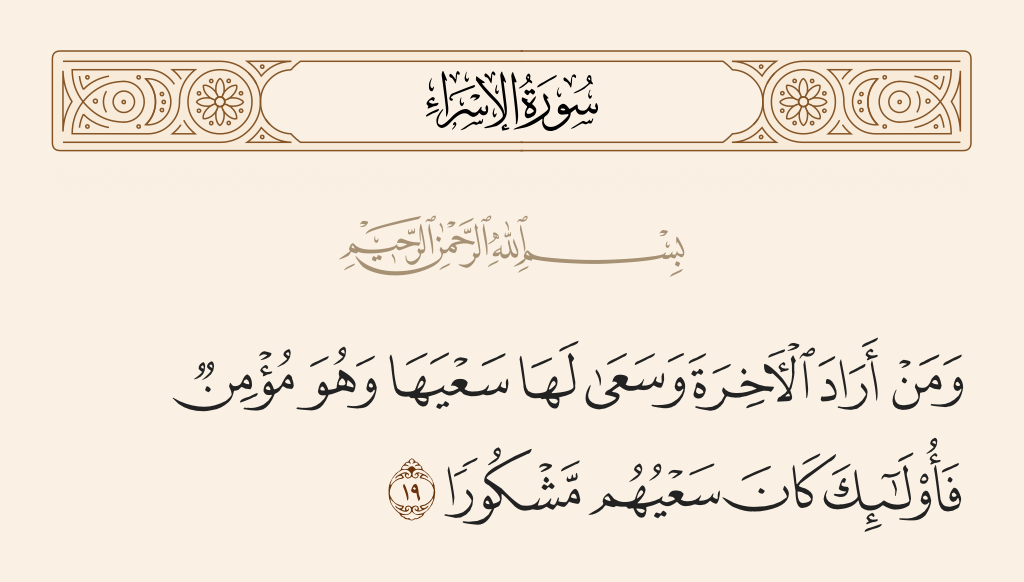 سُورَةُ الإِسْرَاءِ
بِسْمِ ٱللَّهِ ٱلرَّحْمَٰنِ ٱلرَّحِيمِ
وَمَنْ أَرَادَ ٱلْأَخِرَةَ وَسَعَىٰ لَهَا سَعْيَهَا وَهُوَ مُؤْمِنٌ
فَأُو۟لَـٰٓئِكَ كَانَ سَعْيُهُم مَّشْكُورًا ١٩